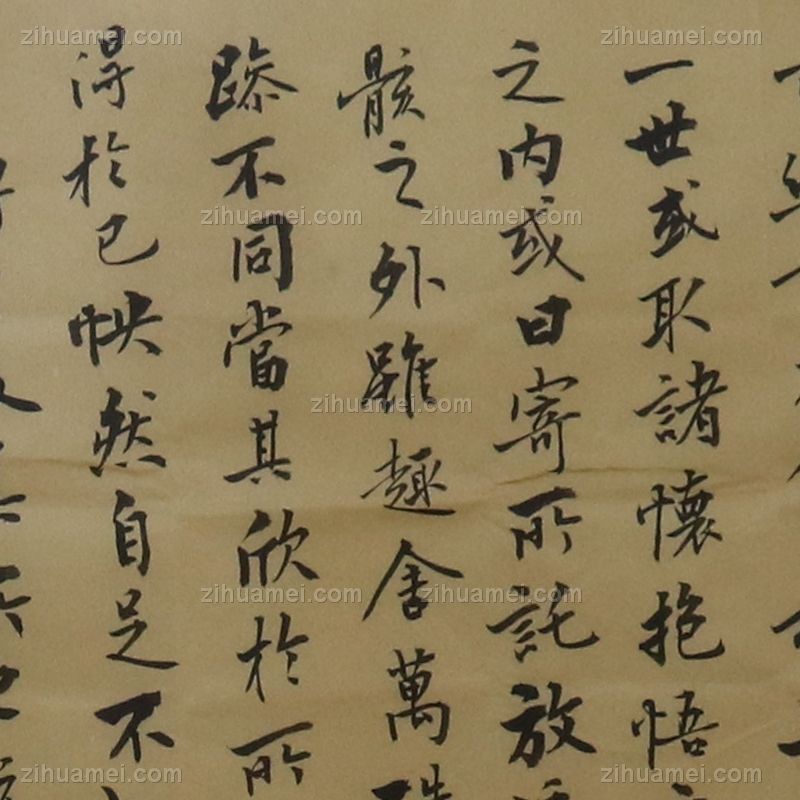 一世或取諸懷抱悟
之内或曰寄所託放
骸之外雖趣舍萬
躁不同當其欣於所
得於己怏然自足不
zihuamei.com zihuamei.com zihuamei.com
zihuamei.com zihuamei.com
zihuamei.com
zihuamei.com zihuamei.com
zihuamei.com zihuamei.com zihuamei.com